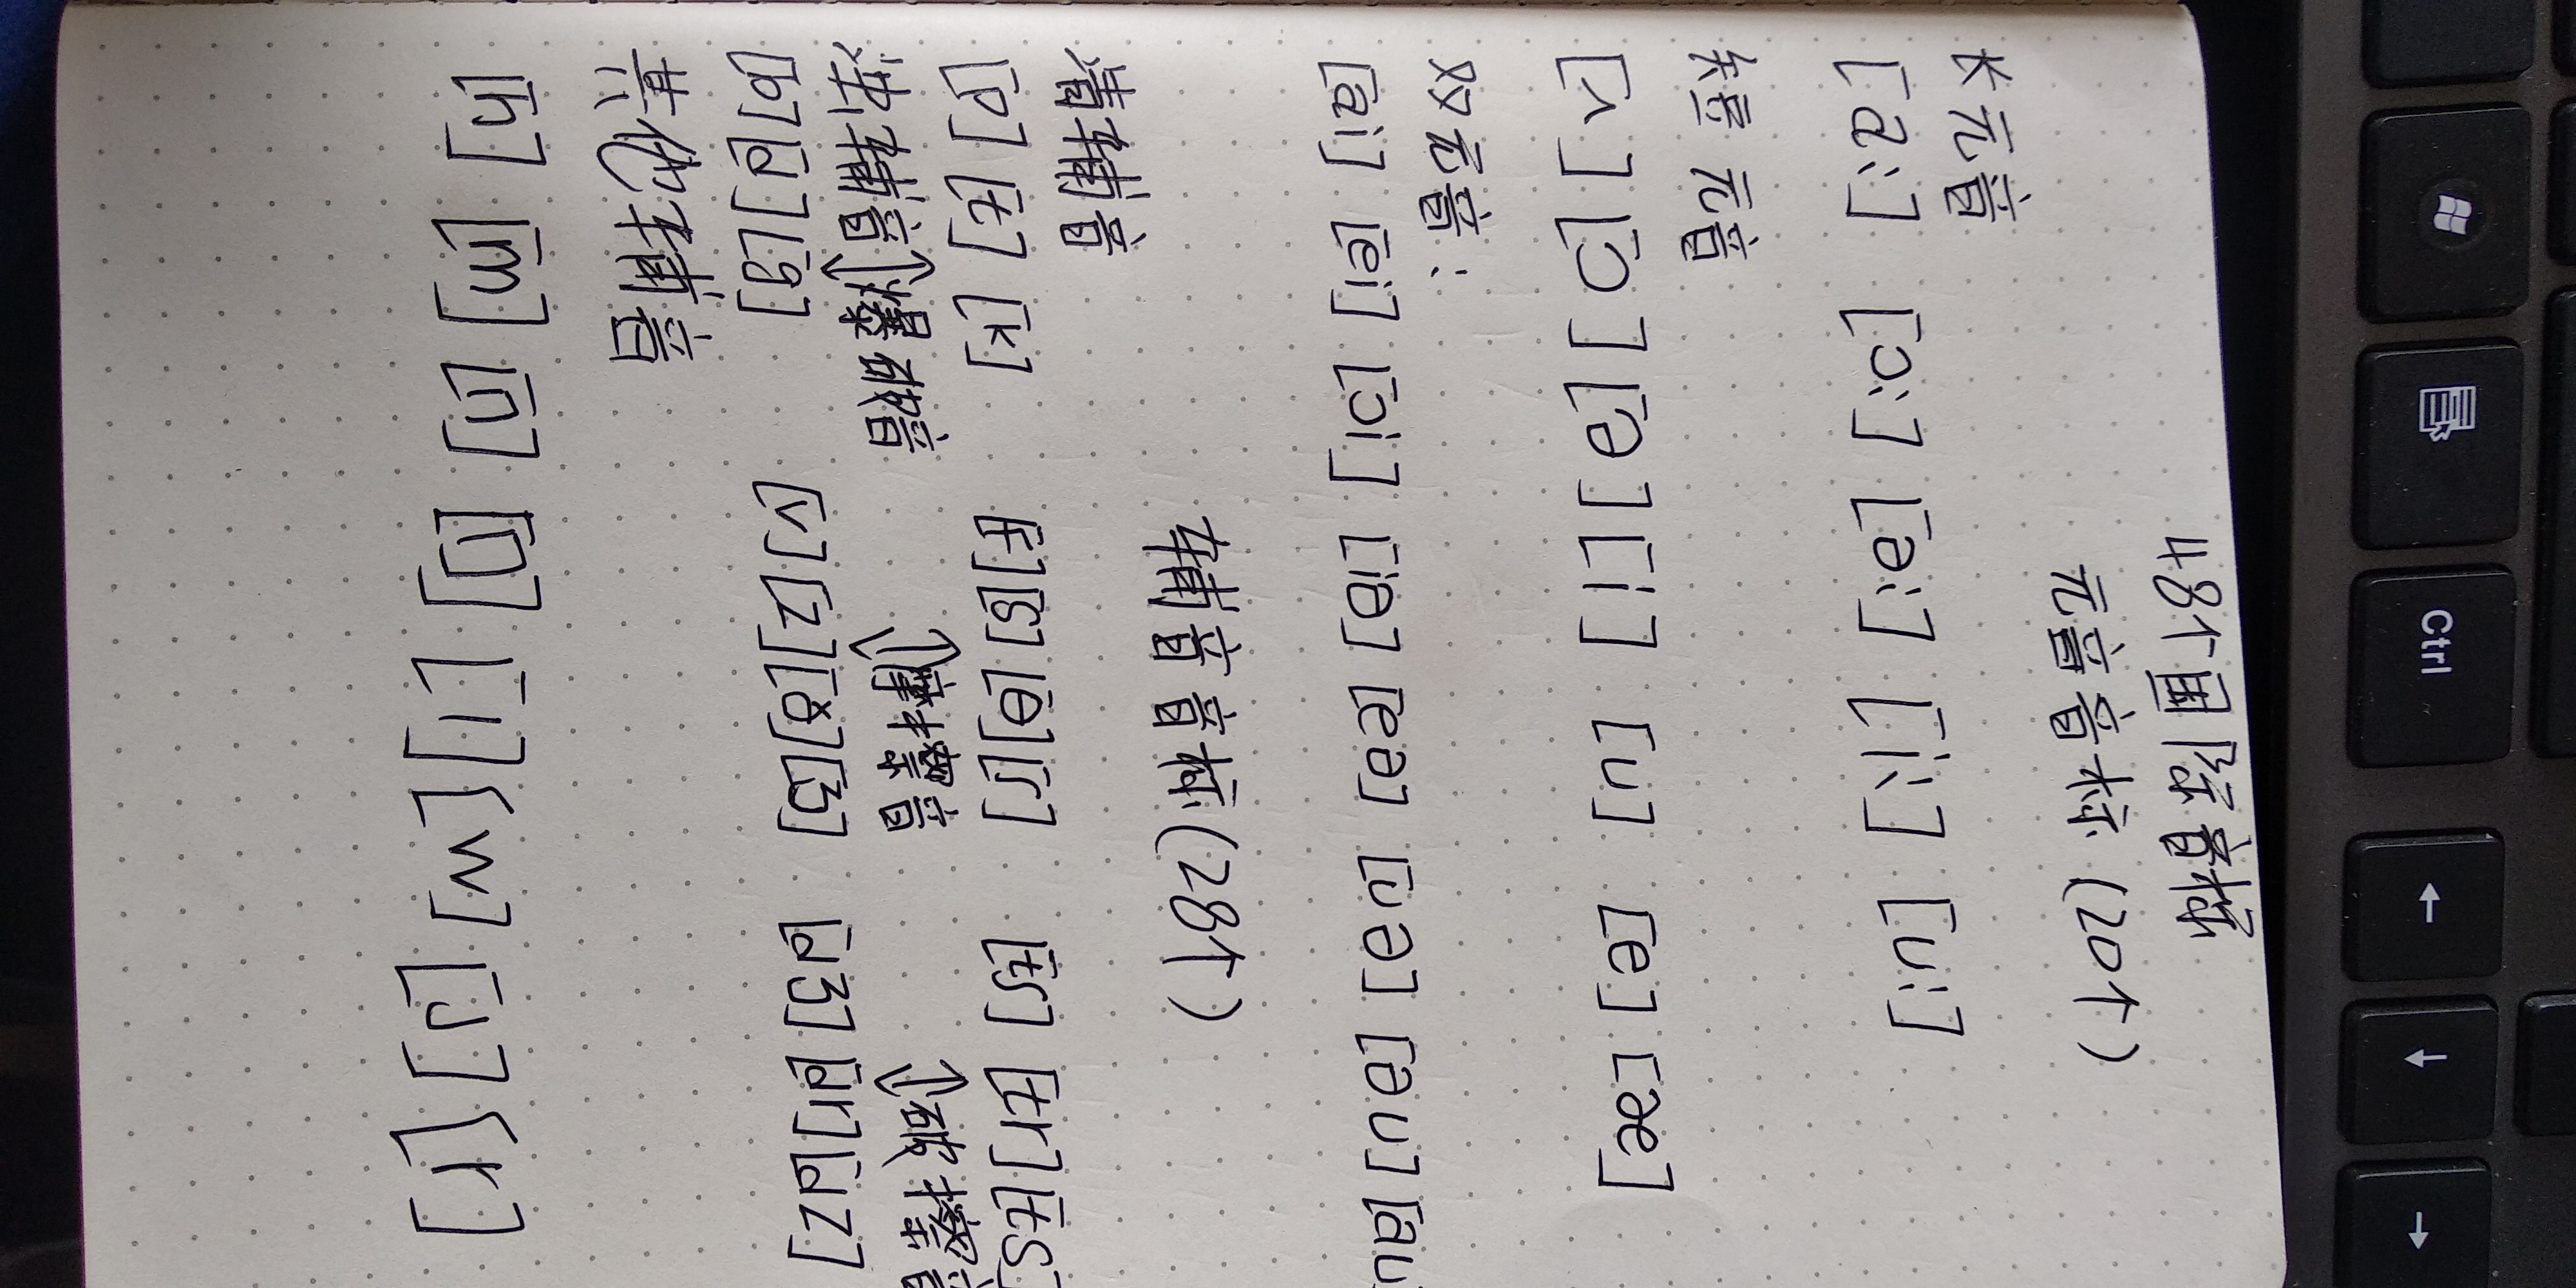 48个国际音标
元音音标 (20个)
长元音
[ɑ:] [ɔ:] [ə:] [i:] [u:]
短元音
[ʌ] [ɔ] [ə] [i] [u] [e] [æ]
双元音:
[ai] [ei] [ɔi] [iə] [eə] [uə] [əu] [au
辅音音标 (28个)
清辅音
[p] [t] [k] [f] [s] [θ] [ʃ] [tʃ] [tr] [ts]
浊辅音 爆破音 摩擦音
[b] [d] [g] [v] [z] [ð] [ʒ] [dʒ] [dr] [dz]
辅音
[h] [m] [n] [ŋ] [l] [w] [r] [j]
Ctrl
←
↑
→